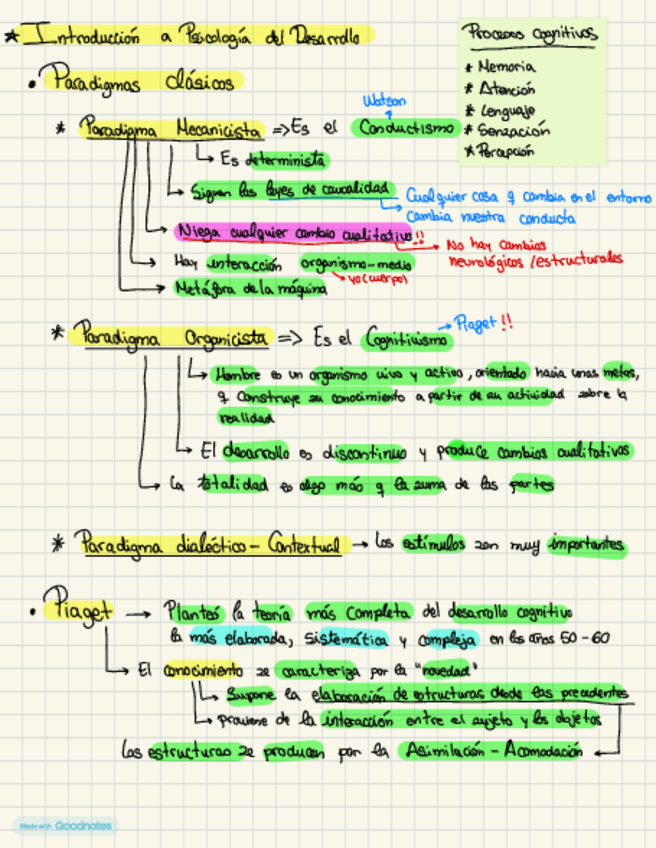 * Introducción a Psicología del Desarrollo
Procesos Cognitivos
* Memoria
* Atención
* Lenguaje
* Sensación
* Percepción
• Paradigmas clásicos
Watson
* Paradigma Mecanicista => Es el Conductismo
Es determinista
Siguen las leyes de causalidad
Cualquier cosa q cambia en el entorno
cambia nuestra conducta
Niega cualquier cambio cualitativo!!
No hay cambios
neurológicos/estructurales
Hay interacción organismo-medio
yo(cuerpo)
Metáfora de la máquina
* Paradigma Organicista => Es el Cognitivismo → Piaget!!
Hombre es un organismo vivo y activo, orientado hacia unas metas,
q construye su conocimiento a partir de su actividad sobre la
realidad
El desarrollo es discontinuo y produce cambios cualitativos
La totalidad es algo más q la suma de las partes
* Paradigma dialéctico - Contextual → Los estímulos son muy importantes
• Piaget → Planteó la teoría más completa del desarrollo cognitivo
la más elaborada, sistemática y compleja en los años 50-60
El conocimiento se caracteriza por la "novedad"
Supone la elaboración de estructuras desde las precedentes
proviene de la interacción entre el sujeto y los objetos
Las estructuras se producen por la Asimilación - Acomodación
Made with Goodnotes